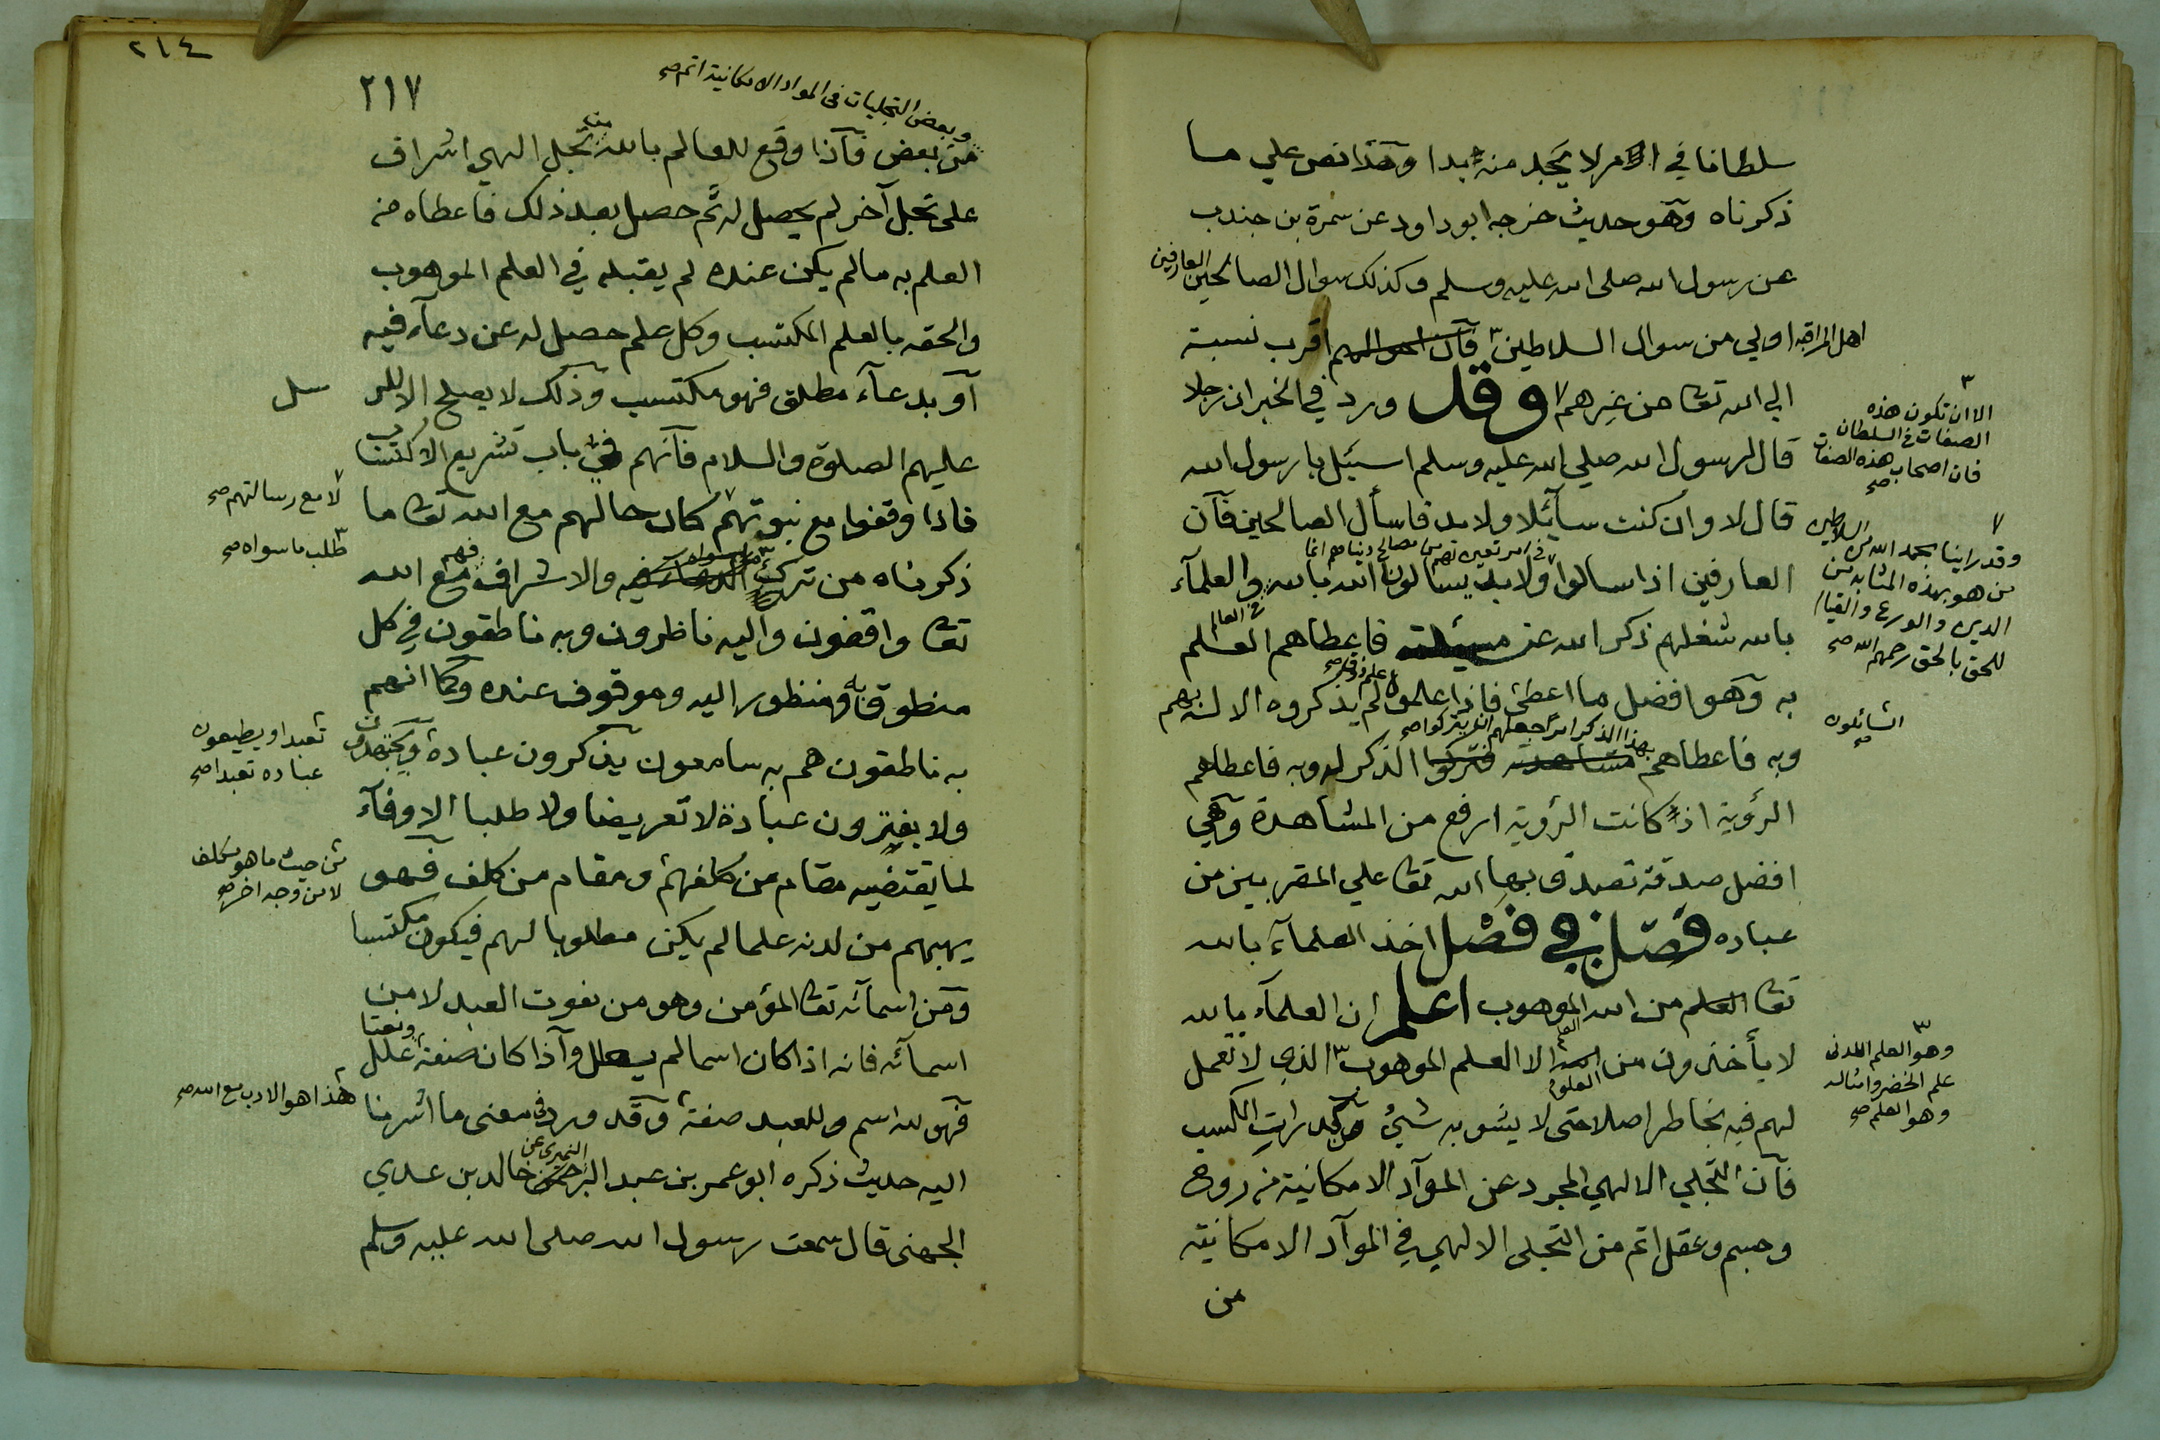 سلطانا في امر لا يجد منه بدا وهذا نص علي ما
ذكرناه وهو حديث خرجه ابو داود عن سمرة بن جندب
عن رسول الله صلى الله عليه وسلم وكذلك سوال الصالحين العارفين
اهل المراقبة اولي من سوال السلاطين فان احوالهم اقرب نسبة
الي الله تعا من غيرهم وقد ورد في الخبر ان رجلا
قال لرسول الله صلي الله عليه وسلم اسئل يا رسول الله
قال لا وان كنت سآئلا ولا بد فاسأل الصالحين فآن
العارفين اذا سالوا ولا بد يسالون الله بالله والعلمآء
بالله شغلهم ذكر الله عن مسئلته فاعطاهم العلم
به وهو افضل ما اعطي فاذا علموا لم يذكروه الا له بهم
وبه فاعطاهم مشاهدته فتركوا الذكر له وبه فاعطاهم
الرؤية اذ كانت الرؤية ارفع من المشاهدة وهي
افضل صدقة تصدق بها الله تعا علي المقربين من
عباده فصل في فضل اخذ العلمآء بالله
تعا العلم من الله الموهوب اعلم ان العلمآء بالله
لا يأخذون من العلوم الا العلم الموهوب الذي لا تعمل
لهم فيه بخاطر اصلا حتى لا يشوبه شيئ من كدرات الكسب
فآن التجلي الالهي المجرد عن الموآد الامكانية من روح
وجسم وعقل اتم من التجلي الالهي في الموآد الامكانية
من
الا ان تكون هذه
الصفات في السلطان
فان اصحاب هذه الصفات
صح
وقد راينا بحمد الله من السلاطين
من هو بهذه المثابة من
الدين والورع والقيام
للحق بالحق رحمهم الله صح
السائلون
صح
وهو العلم اللدنى
علم الخضر وامثاله
وهو العلم صح
٢١٤
٢١٧
وبعض التجليات في المواد الامكانية اتم صح
من بعض فآذا وقع للعالم بالله تجل الهي اشراف
على تجل آخر لم يحصل له ثم حصل بعد ذلك فاعطاه من
العلم به ما لم يكن عنده لم يقبله في العلم الموهوب
والحقه بالعلم المكتسب وكل علم حصل له عن دعآء فيه
آو بدعآء مطلق فهو مكتسب وذلك لا يصلح الا للر
سل
عليهم الصلوة والسلام فآنهم في باب تشريع الاكتساب
فاذا وقفوا مع نبوتهم كان حالهم مع الله تعا ما
لا مع رسالتهم صح
ذكرناه من ترك والاشراف فهم مع الله
طلب ما سواه صح
تعا واقفون واليه ناظرون وبه ناطقون في كل
منطوق به ومنظور اليه وموقوف عنده وكما انهم
به ناطقون هم به سامعون يذكرون عبادة ويجتهدون
تعبدا ويطيعون
عبادة تعبدا صح
ولا يفترون عبادة لا تعريضا ولا طلبا الا وفآء
لما يقتضيه مقام من كلفهم ومقام من كلف فهو
من حيث ما هو مكلف
لا من وجه اخر صح
يهبهم من لدنه علما لم يكن مطلوبا لهم فيكون مكتسبا
ومن اسمآئه تعا المؤمن وهو من نعوت العبد لا من
اسمآئه فانه اذا كان اسما لم يعلل وآذا كان صفة ونعتا علل
فهو لله اسم وللعبد صفة وقد ورد في معنى ما اشرنا
هذا هو الادب مع الله صح
اليه حديث ذكره ابو عمر بن عبد البر النمري عن خالد بن عدي
الجهني قال سمعت رسول الله صلى الله عليه وسلم